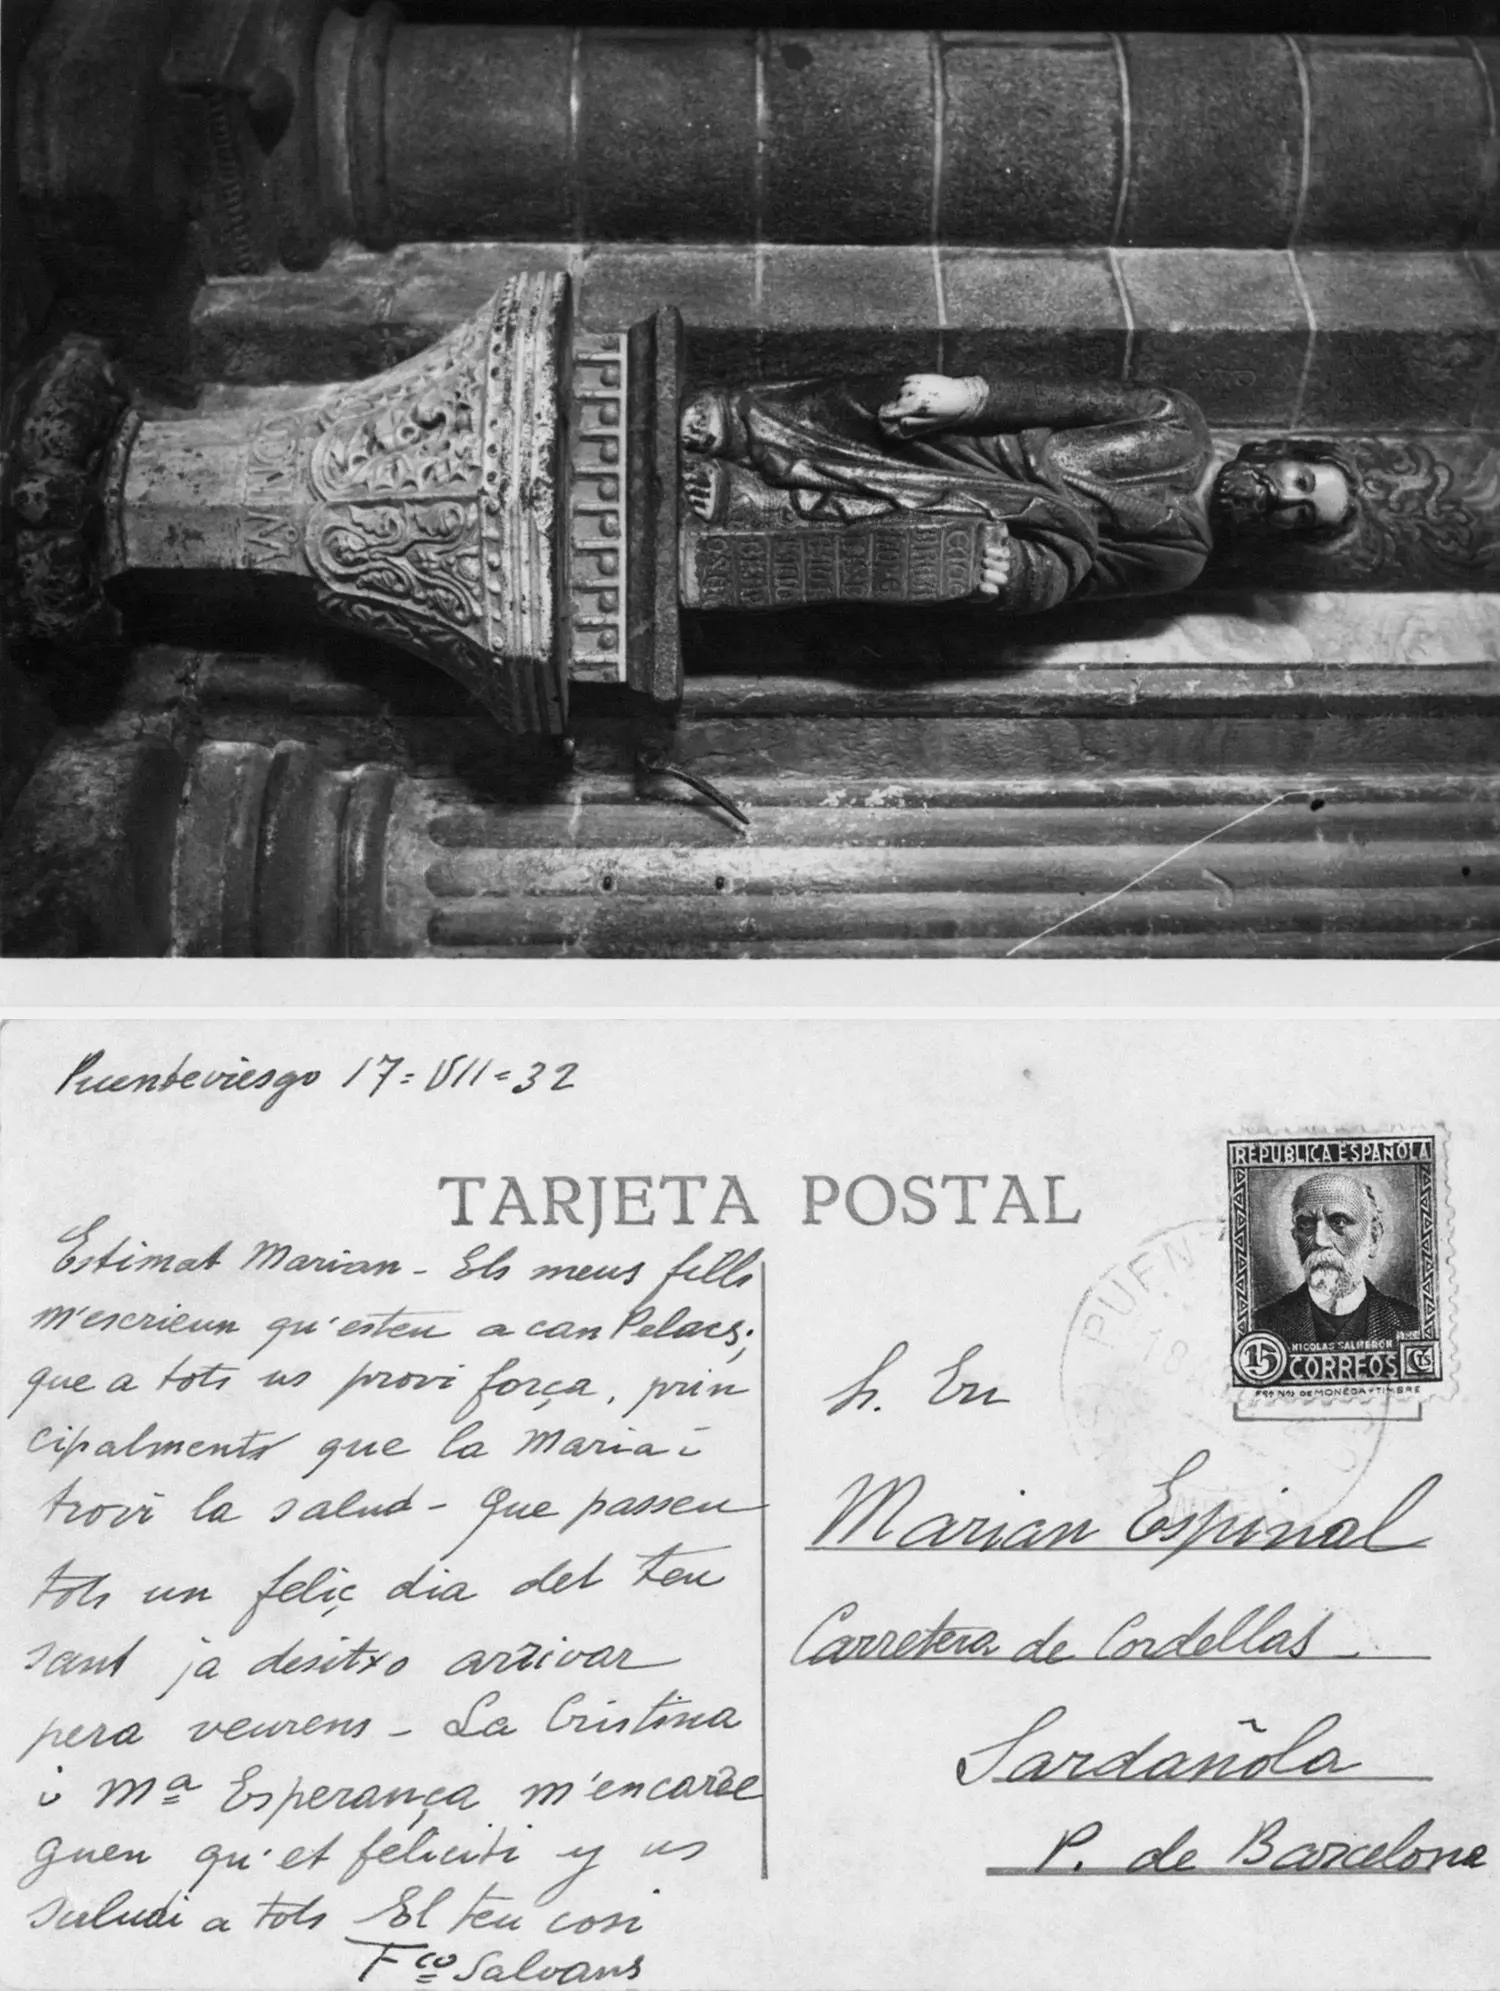 Puenteviesgo 17=VII=32
TARJETA POSTAL
Estimat Marian - Els meus fills
m'escrieun qu'esteu a can Pelacs;
que a tots us provi força, prin
cipalments que la Maria i
trovi la salud - Que passeu
tots un feliç dia del teu
sant ja desitxo arrivar
pera veurens - La Cristina
i Mª Esperança m'encarre
guen qu'et feliciti y us
saludi a tots El teu cosi
Fco Salvans
REPUBLICA ESPAÑOLA
NICOLAS SALMERON
15 CORREOS CTS
PUENT
18
Sr. En
Marian Espinal
Carretera de Cordellas
Sardañola
P. de Barcelona